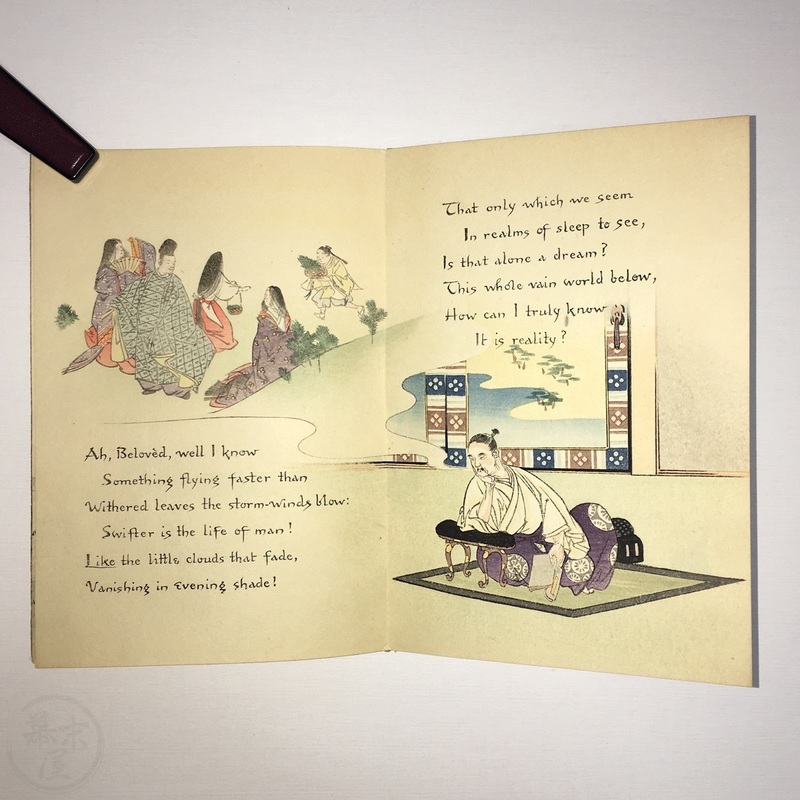 Ah, Belovèd, well I know
Something flying faster than
Withered leaves the storm-winds blow:
Swifter is the life of man!
Like the little clouds that fade,
Vanishing in evening shade!
That only which we seem
In realms of sleep to see,
Is that alone a dream?
This whole vain world below,
How can I truly know
It is reality?
幕末屋